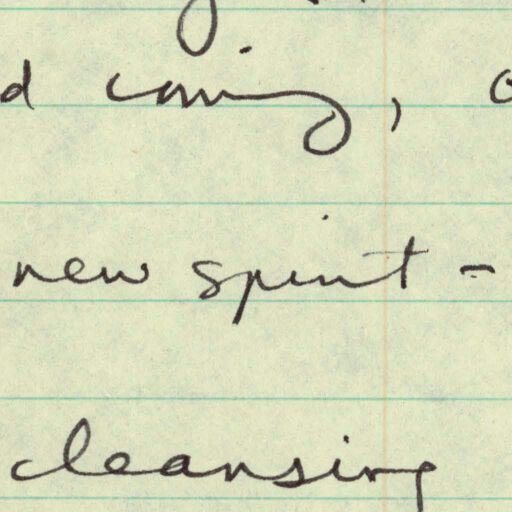 coming,
new spirit -
cleansing